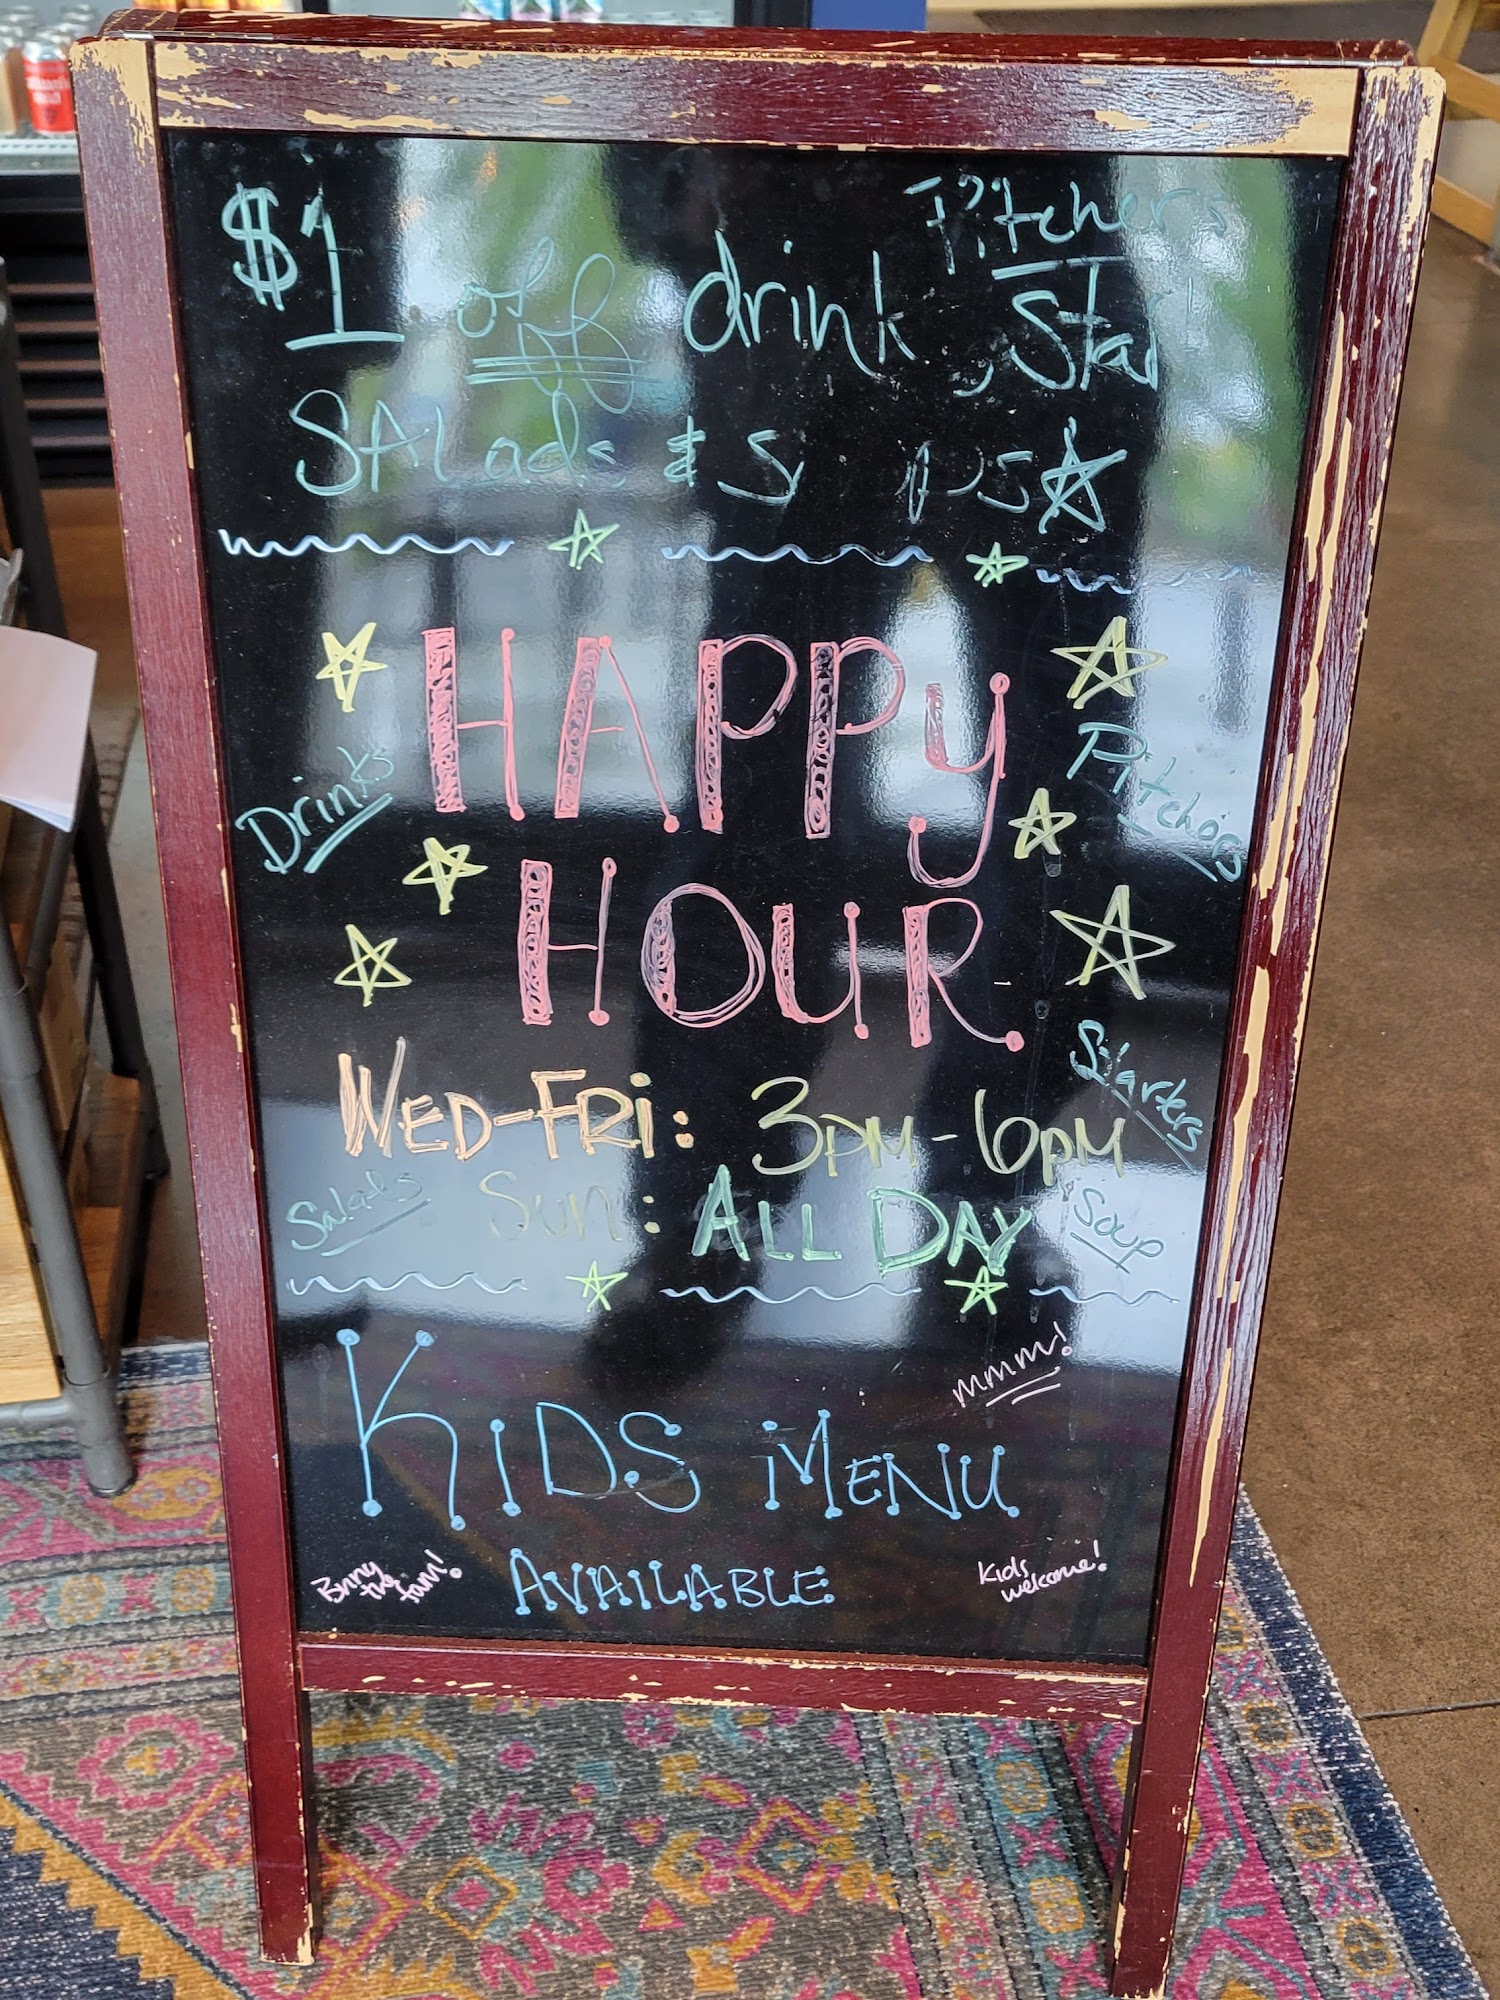 Pitchers
$1 off drink, Star
SALads & S ps
HAPPy
Drinks
Pitchers
HOUR
Starters
WED-FRI: 3PM-6PM
Salads
Sun: ALL DAY
Soup
mmm!
KiDS MENU
Bring the fam!
AVAILABLE
Kids welcome!